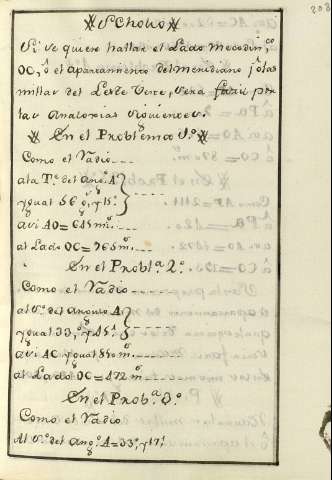 Scholio
Si se quiere hallar el Lado Mecodin.co
OC, ô el apartamento del meridiano, ô las
millas del Leste Oeste, será facil por
las Analogias siguientes.
En el Problema 1.o
Como el Radio
ala T.e del ang.o A
ygual 56°, y 15'.
asi AO = 645 m.s
al Lado OC = 965 m.s
En el Probl.a 2.o
Como el Radio
al S.o del angulo A
ygual 33°, y 45'.
asi AC ygual 850 m.s
al Lado OC = 472 m.s
En el Prob.a 3.o
Como el Radio
Al S.o del ang.o A = 33°, y 45'.